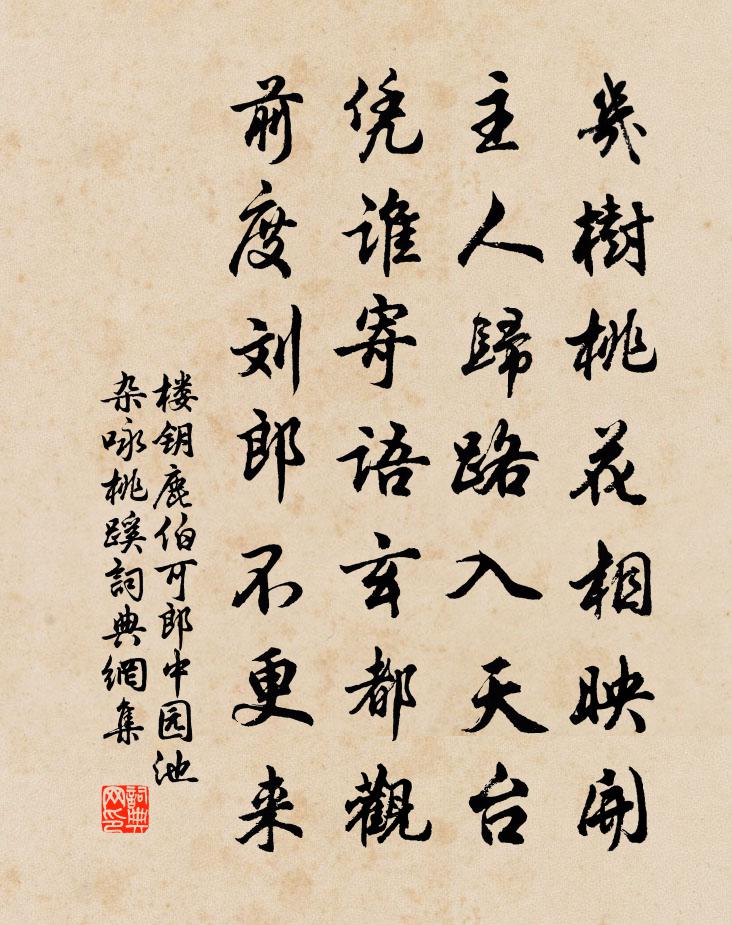 幾樹桃花相映開
主人歸路入天台
凭谁寄语玄都觀
前度刘郎不更来
楼钥鹿伯可郎中园池
杂咏桃蹊詞典網集
詞典网印